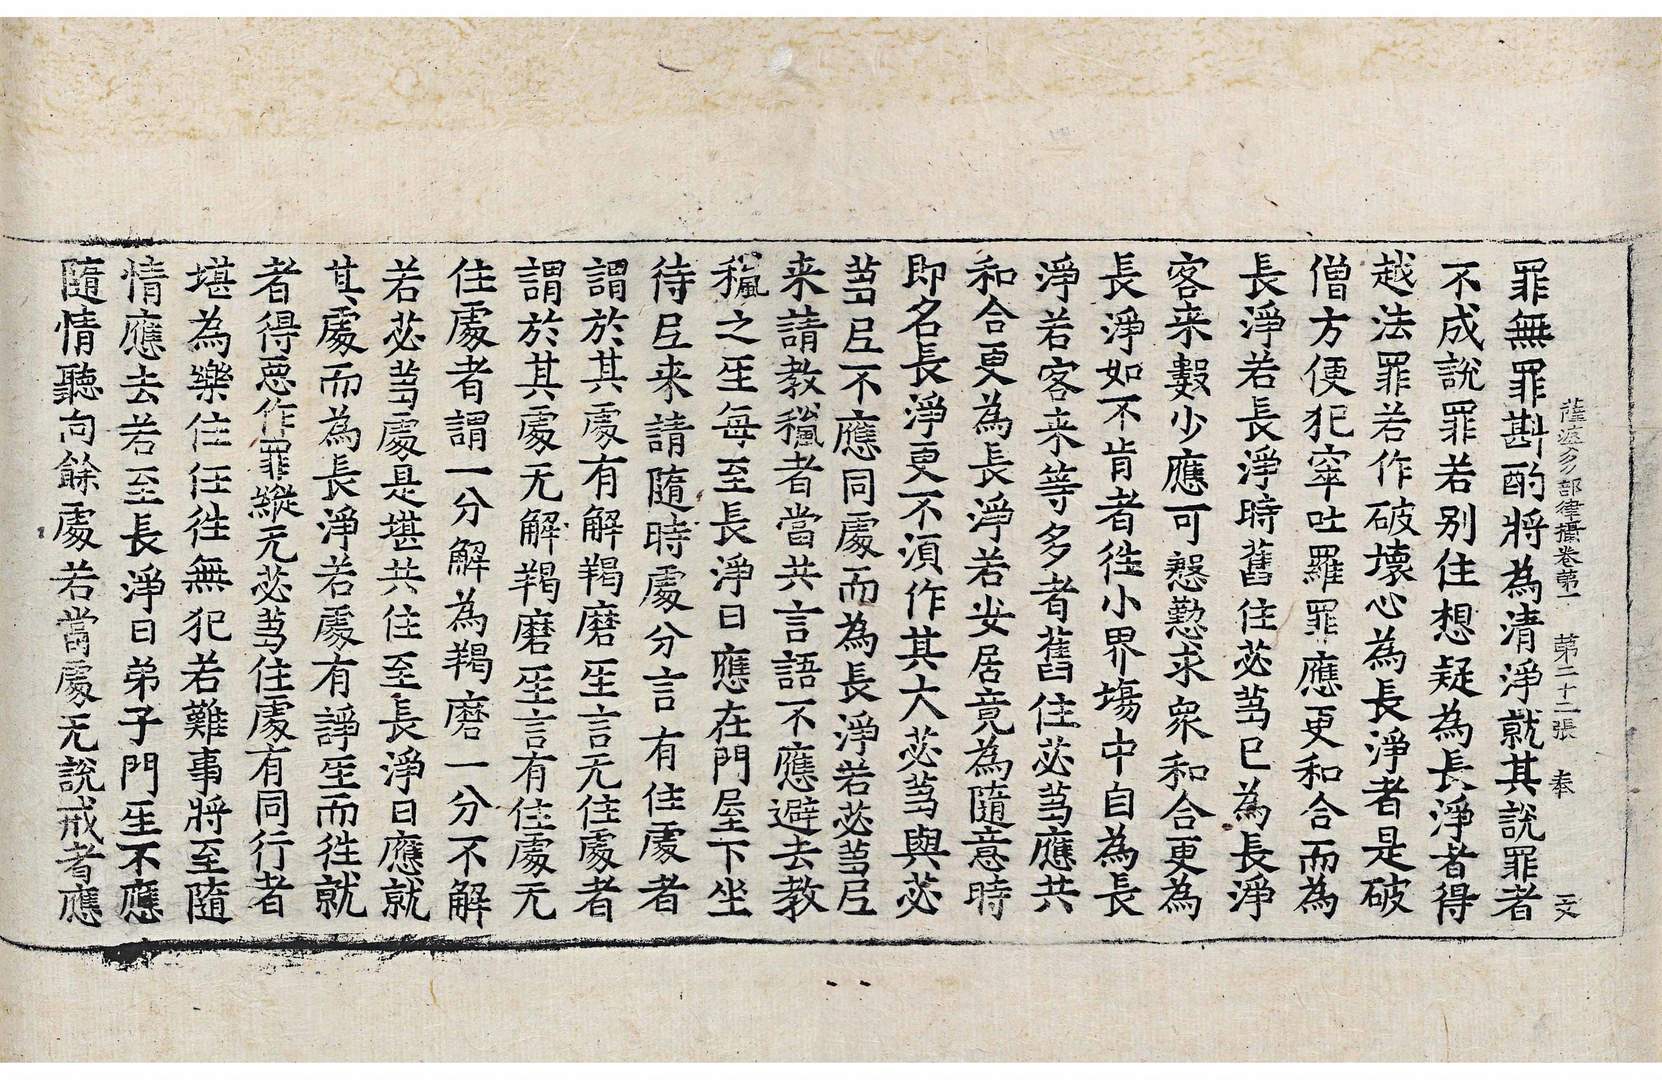 薩婆多部律攝卷第一　第二十二張　奉　文
罪無罪斟酌將為清淨就其說罪者
不成說罪若別住想疑為長淨者得
越法罪若作破壞心為長淨者是破
僧方便犯窣吐羅罪應更和合而為
長淨若長淨時舊住苾芻已為長淨
客来數少應可慇懃求衆和合更為
長淨如不肯者徃小界塲中自為長
淨若客来等多者舊住苾芻應共
和合更為長淨若安居竟為隨意時
即名長淨更不湏作其大苾芻與苾
芻尼不應同處而為長淨若苾芻尼
来請教𥤮者當共言語不應避去教
𥤮之𤯔每至長淨日應在門屋下坐
待尼来請隨時處分言有住處者
謂於其處有解羯磨𤯔言无住處者
謂於其處无解羯磨𤯔言有住處无
住處者謂一分解為羯磨一分不解
若苾芻處是堪共住至長淨日應就
其處而為長淨若處有諍𤯔而徃就
者得惡作罪縱无苾芻住處有同行者
堪為樂住任徃無犯若難事將至隨
情應去若至長淨日弟子門𤯔不應
隨情聽向餘處若當處无說戒者應